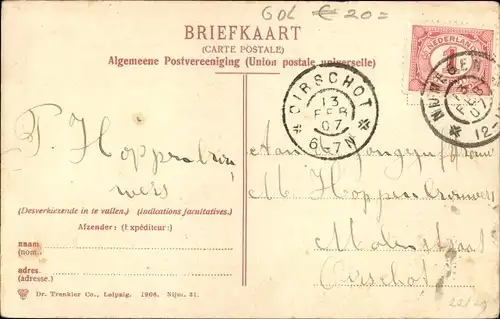 GOL € 20=
BRIEFKAART
(CARTE POSTALE)
Algemeene Postvereeniging (Union postale universelle)
NEDERLAND
1
OIRSCHOT
13
FEB
07
6-7N
FEB
07
12-
Aan
M Hoppenbrouwers
Oirschot
(Desverkiezende in te vullen.) (Indications facultatives.)
Afzender: (Expéditeur:)
naam
(nom.)
adres
(adresse.)
Dr. Trenkler Co., Leipzig. 1906. Nijm. 31.